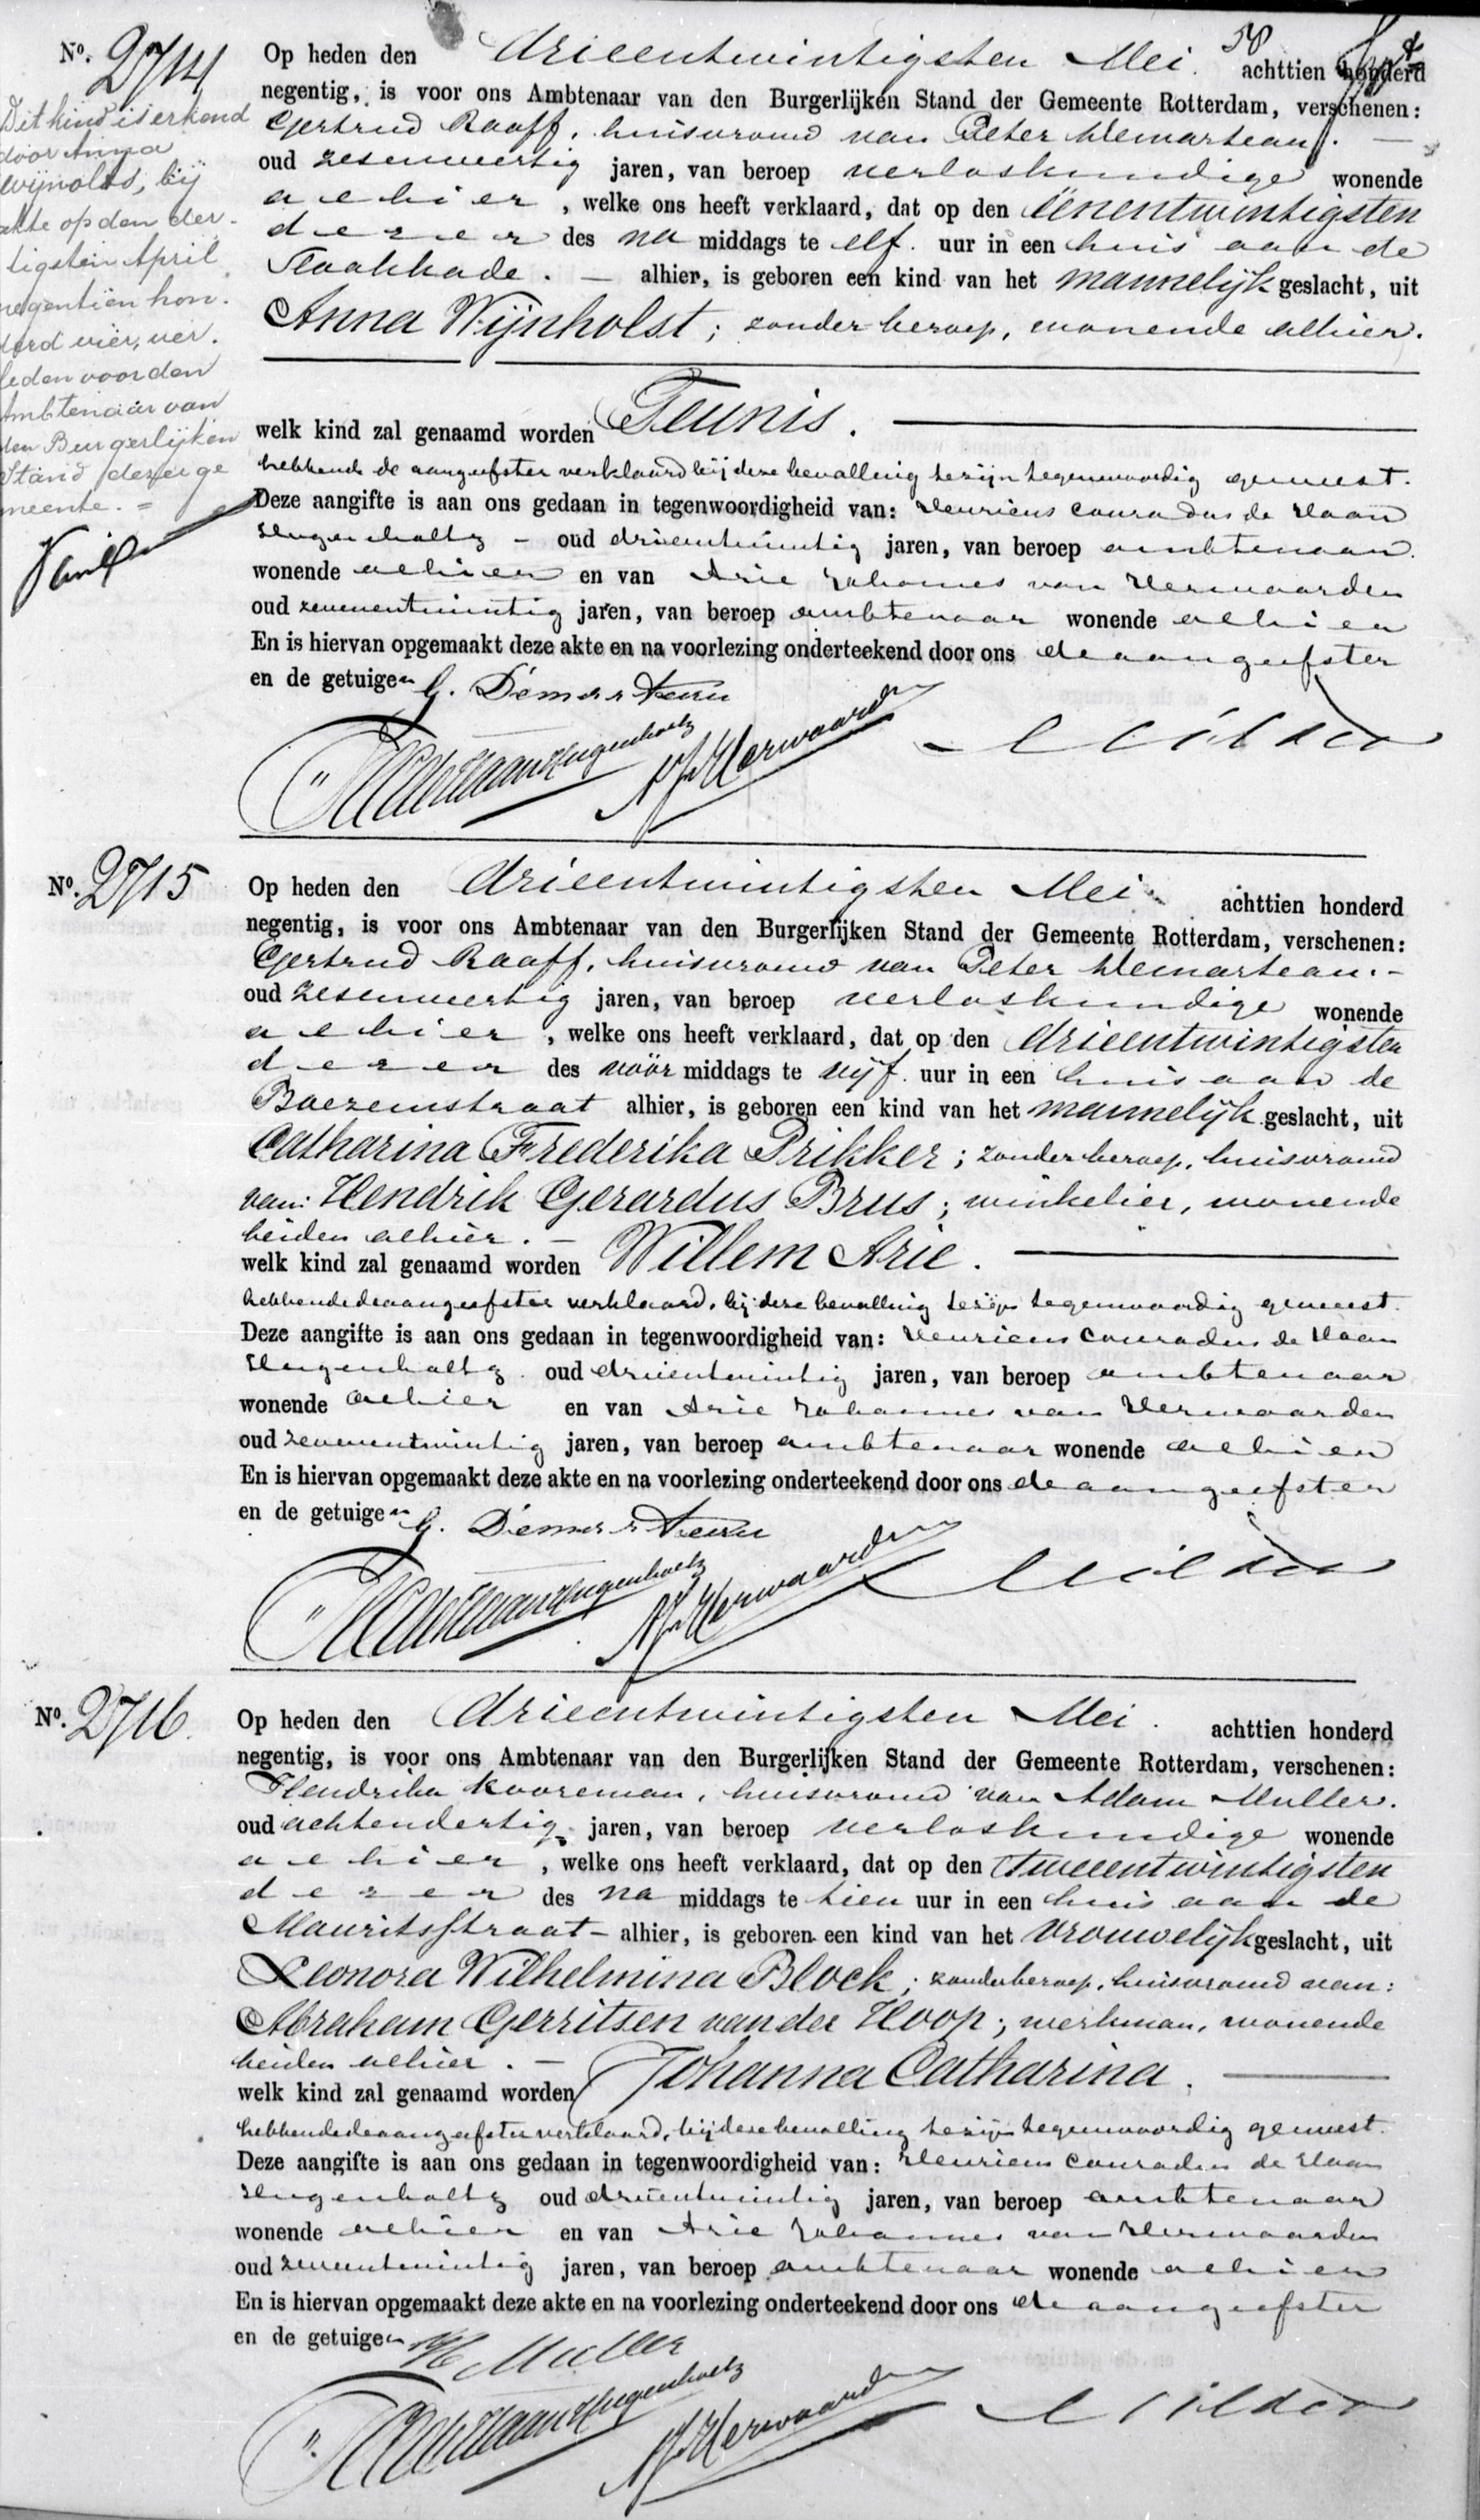 58
Nº. 2714
Op heden den drieentwintigsten Mei. achttien honderd
negentig, is voor ons Ambtenaar van den Burgerlijken Stand der Gemeente Rotterdam, verschenen:
Gertrud Raaff, huisvrouw van Peter Demarteau. —
oud zesenveertig jaren, van beroep verloskundige wonende
alhier, welke ons heeft verklaard, dat op den eenentwintigsten
dezer des na middags te elf. uur in een huis aan de
kade. — alhier, is geboren een kind van het mannelijk geslacht, uit
Anna Wijnholst; zonder beroep, wonende alhier.
welk kind zal genaamd worden Teunis.
hebbende de aangeefster verklaard bij deze bevalling te zijn tegenwoordig geweest.
Deze aangifte is aan ons gedaan in tegenwoordigheid van: Henricus Conradus de Haan
Hugenholtz — oud drieentwintig jaren, van beroep ambtenaar.
wonende alhier en van Arie Johannes van Herwaarden
oud zevenentwintig jaren, van beroep ambtenaar wonende alhier
En is hiervan opgemaakt deze akte en na voorlezing onderteekend door ons de aangeefster
en de getuigen G. Demarteau
HCdeHaanHugenholtz AJvHerwaarden
Dit kind is erkend
door Anna
Wijnolds, bij
akte op den der-
tigsten April
negentien hon-
derd vier, ver-
leden voor den
Ambtenaar van
den Burgerlijken
Stand dezer ge
meente. =
Nº. 2715
Op heden den drieentwintigsten Mei achttien honderd
negentig, is voor ons Ambtenaar van den Burgerlijken Stand der Gemeente Rotterdam, verschenen:
Gertrud Raaff, huisvrouw van Peter Demarteau. —
oud zesenveertig jaren, van beroep verloskundige wonende
alhier, welke ons heeft verklaard, dat op den drieentwintigsten
dezer des vóór middags te vijf. uur in een huis aan de
Boezemstraat alhier, is geboren een kind van het mannelijk geslacht, uit
Catharina Frederika Prikker; zonder beroep, huisvrouw
van: Hendrik Gerardus Brus; winkelier, wonende
beiden alhier. —
welk kind zal genaamd worden Willem Arie.
hebbende de aangeefster verklaard, bij deze bevalling te zijn tegenwoordig geweest.
Deze aangifte is aan ons gedaan in tegenwoordigheid van: Henricus Conradus de Haan
Hugenholtz oud drieentwintig jaren, van beroep ambtenaar
wonende alhier en van Arie Johannes van Herwaarden
oud zevenentwintig jaren, van beroep ambtenaar wonende alhier
En is hiervan opgemaakt deze akte en na voorlezing onderteekend door ons de aangeefster
en de getuigen G. Demarteau
HCdeHaanHugenholtz AJvHerwaarden
Nº. 2716.
Op heden den drieentwintigsten Mei. achttien honderd
negentig, is voor ons Ambtenaar van den Burgerlijken Stand der Gemeente Rotterdam, verschenen:
Hendrika Kooreman, huisvrouw van Adam Muller.
oud achtendertig jaren, van beroep verloskundige wonende
alhier, welke ons heeft verklaard, dat op den tweeentwintigsten
dezer des na middags te tien uur in een huis aan de
Mauritsstraat — alhier, is geboren een kind van het vrouwelijk geslacht, uit
Leonora Wilhelmina Block; zonder beroep, huisvrouw van:
Abraham Gerritsen van der Hoop; werkman, wonende
beiden alhier. —
welk kind zal genaamd worden Johanna Catharina.
hebbende de aangeefster verklaard, bij deze bevalling te zijn tegenwoordig geweest.
Deze aangifte is aan ons gedaan in tegenwoordigheid van: Henricus Conradus de Haan
Hugenholtz oud drieentwintig jaren, van beroep ambtenaar
wonende alhier en van Arie Johannes van Herwaarden
oud zevenentwintig jaren, van beroep ambtenaar wonende alhier
En is hiervan opgemaakt deze akte en na voorlezing onderteekend door ons de aangeefster
en de getuigen H Muller
HCdeHaanHugenholtz AJvHerwaarden